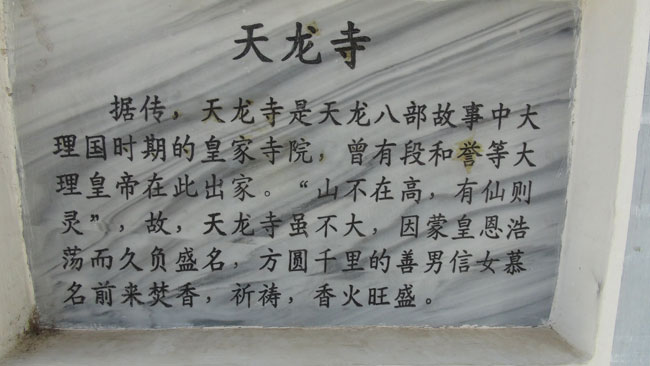 天龙寺
据传，天龙寺是天龙八部故事中大
理国时期的皇家寺院，曾有段和誉等大
理皇帝在此出家。“山不在高，有仙则
灵”，故，天龙寺虽不大，因蒙皇恩浩
荡而久负盛名，方圆千里的善男信女慕
名前来焚香，祈祷，香火旺盛。